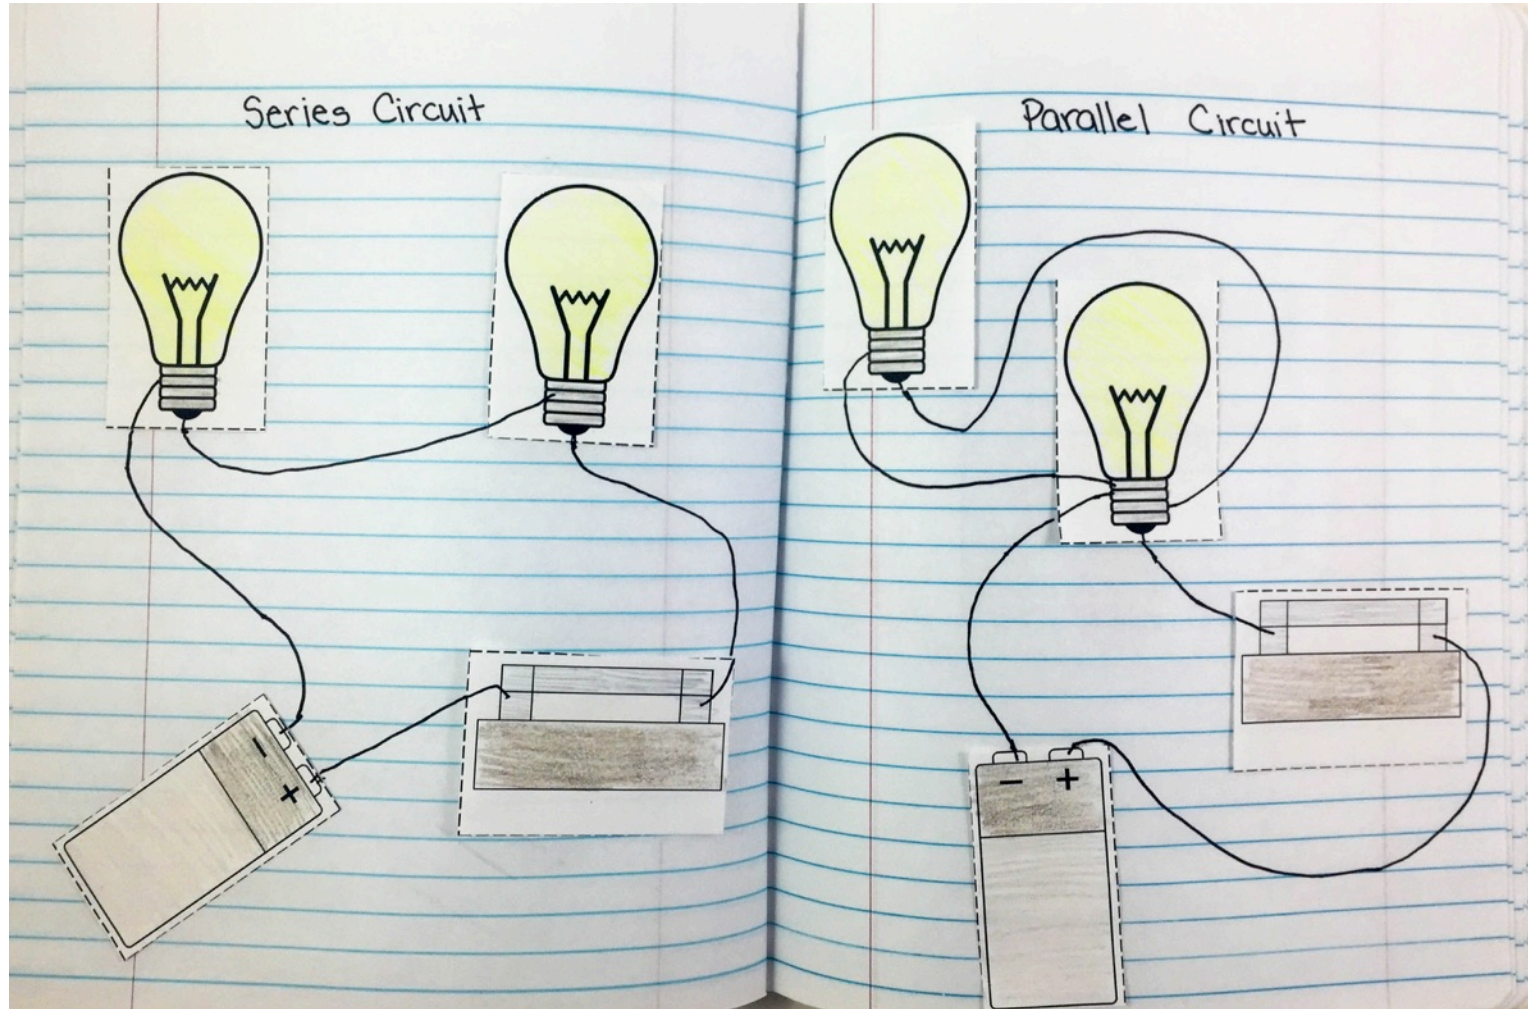 Series Circuit
Parallel Circuit
-
+
- +